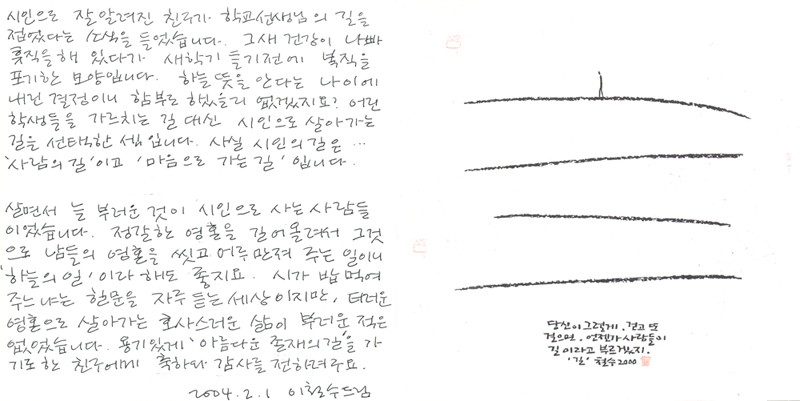 시인으로 잘 알려진 친구가 학교선생님의 길을
접었다는 소식을 들었습니다. 그새 건강이 나빠
휴직을 해 있다가 새학기 들기전에 복직을
포기한 모양입니다. 하늘 뜻을 안다는 나이에
내린 결정이니 함부로 했을리 없겠지요? 어린
학생들을 가르치는 길 대신 시인으로 살아가는
길을 선택한 셈입니다. 사실 시인의 길은 …
'사람의 길'이고 '마음으로 가는 길' 입니다.
살면서 늘 부러운 것이 시인으로 사는 사람들
이었습니다. 정갈한 영혼을 길어올려서 그것
으로 남들의 영혼을 씻고 어루만져 주는 일이니
'하늘의 일' 이라 해도 좋지요. 시가 밥 먹여
주느냐는 힐문을 자주 듣는 세상이지만, 터러운
영혼으로 살아가는 호사스러운 삶이 부러운 적은
없었습니다. 용기있게 '아름다운 존재의 길'을 가
기로한 친구에게 축하와 감사를 전하려구요.
2004.2.1 이철수드림
당신이 그렇게, 걷고 또
걸으면, 언젠가 사람들이
길이라고 부르겠지.
'길' 철수 2000